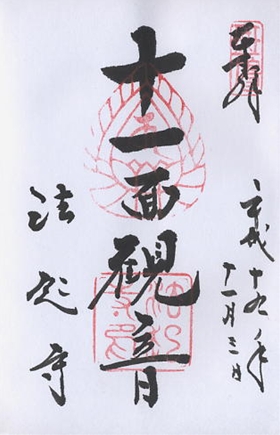 奉拝
平成十九年
十一月三日
十一面観音
法起寺